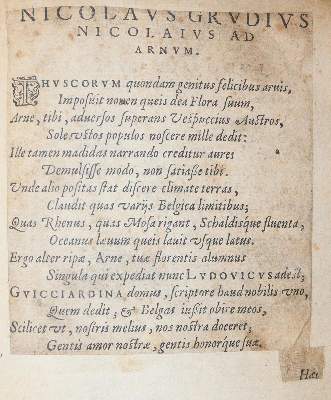 NICOLAVS GRVDIVS
NICOLAIVS AD
ARNVM.
THVSCORVM quondam genitus felicibus aruis,
Imposuit nomen queis dea Flora suum,
Arne, tibi, aduersos superans Vespuccius Austros,
Sole vstos populos noscere mille dedit:
Ille tamen madidas narrando creditur aures
Demulsisse modo, non satiasse tibi.
Vnde alio positas fert discere climate terras,
Claudit quas varijs Belgica limitibus;
Quas Rhenus, quas Mosa rigant, Schaldisque fluenta,
Oceanus læuum queis lauit vsque latus.
Ergo alter ripæ, Arne, tuæ florentis alumnus
Singula qui expediat nunc LVDOVICVS adest;
GVICCIARDINA domus, scriptore haud nobilis vno,
Quem dedit, & Belgas iußit obire meos,
Scilicet vt, nostris melius, nos nostra doceret;
Gentis amor nostræ, gentis honorque suæ.
Hæc